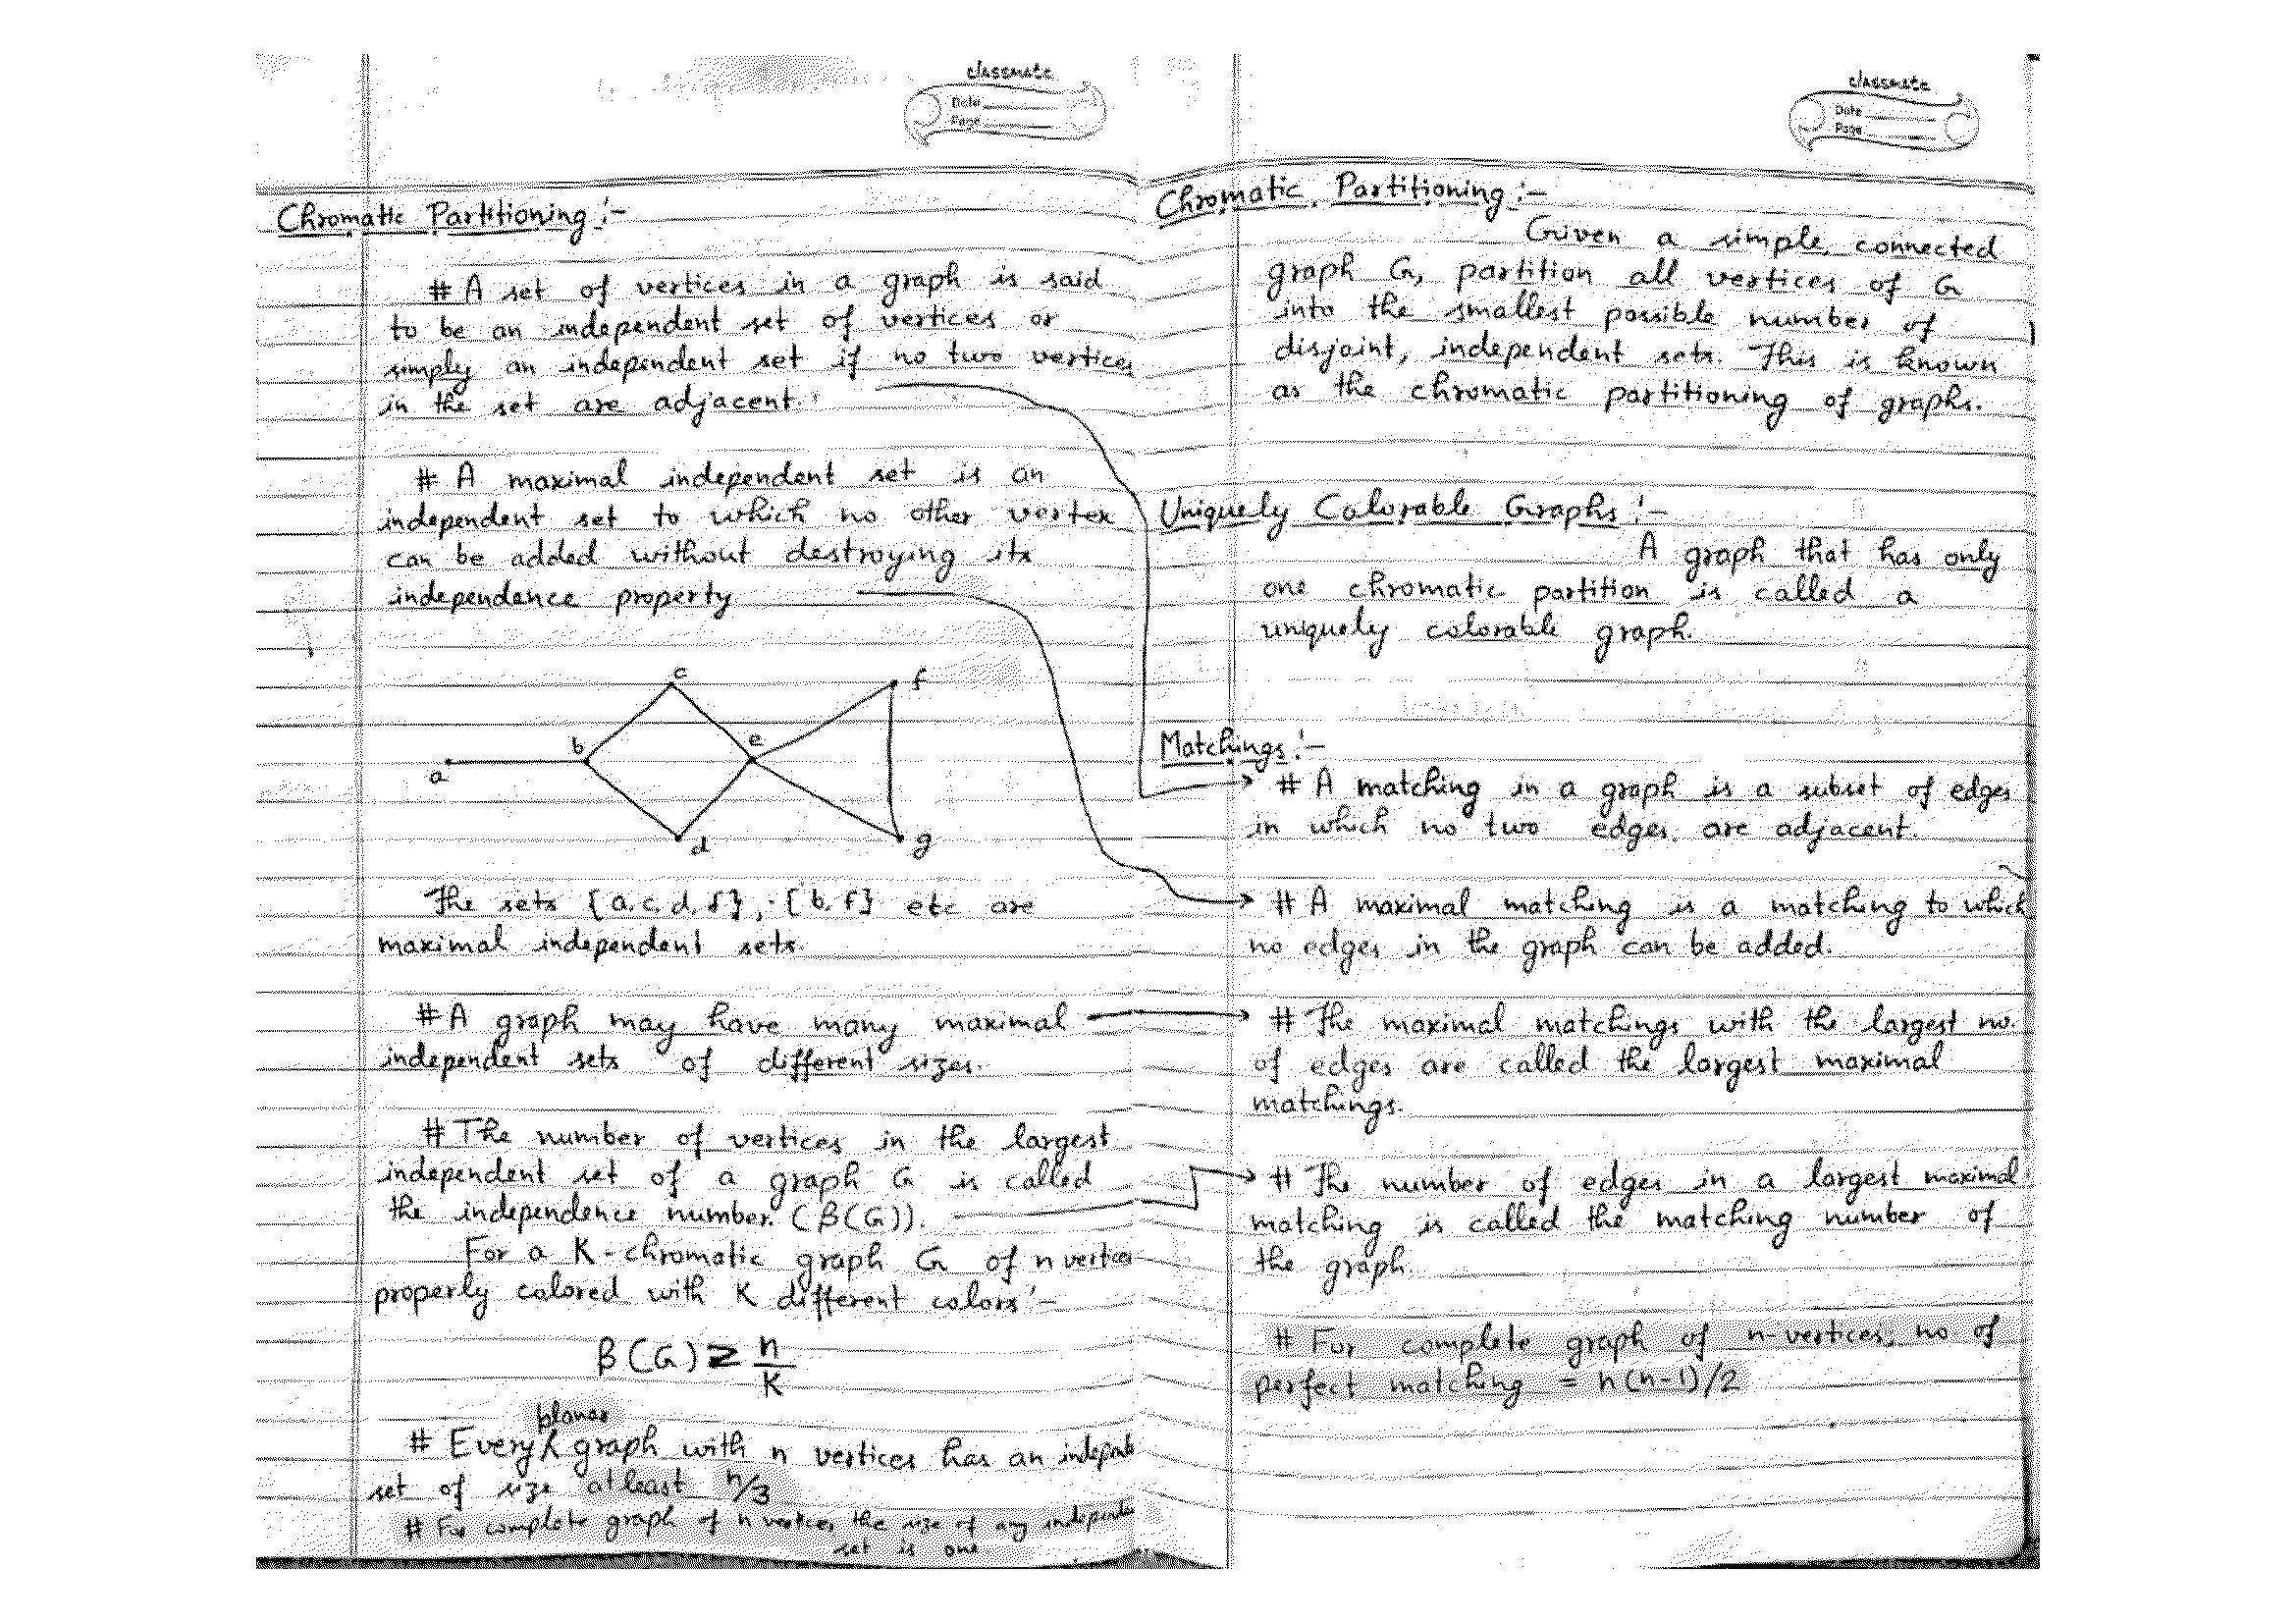 classmate
Date
Page
Chromatic Partitioning :-
# A set of vertices in a graph is said
to be an independent set of vertices or
simply an independent set if no two vertices
in the set are adjacent.
# A maximal independent set is an
independent set to which no other vertex
can be added without destroying its
independence property
c
f
b
e
a
d
g
The sets {a, c, d, f}, {b, f} etc are
maximal independent sets.
# A graph may have many maximal
independent sets of different sizes.
# The number of vertices in the largest
independent set of a graph G is called
the independence number. (β(G)).
For a K-chromatic graph G of n vertices
properly colored with K different colors :-
β(G) ≥ n/K
planar
# Every graph with n vertices has an
set of size atleast n/3
# For complete graph of n vertices the size of any
set is one
classmate
Date
Page
Chromatic Partitioning :-
Given a simple, connected
graph G, partition all vertices of G
into the smallest possible number of
disjoint, independent sets. This is known
as the chromatic partitioning of graphs.
Uniquely Colorable Graphs :-
A graph that has only
one chromatic partition is called a
uniquely colorable graph.
Matchings :-
# A matching in a graph is a subset of edges
in which no two edges are adjacent.
# A maximal matching is a matching to which
no edges in the graph can be added.
# The maximal matchings with the largest no.
of edges are called the largest maximal
matchings.
# The number of edges in a largest maximal
matching is called the matching number of
the graph.
# For complete graph of n-vertices, no of
perfect matching = n(n-1)/2